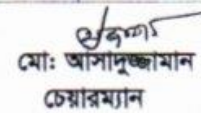 মো: আসাদুজ্জামান
চেয়ারম্যান